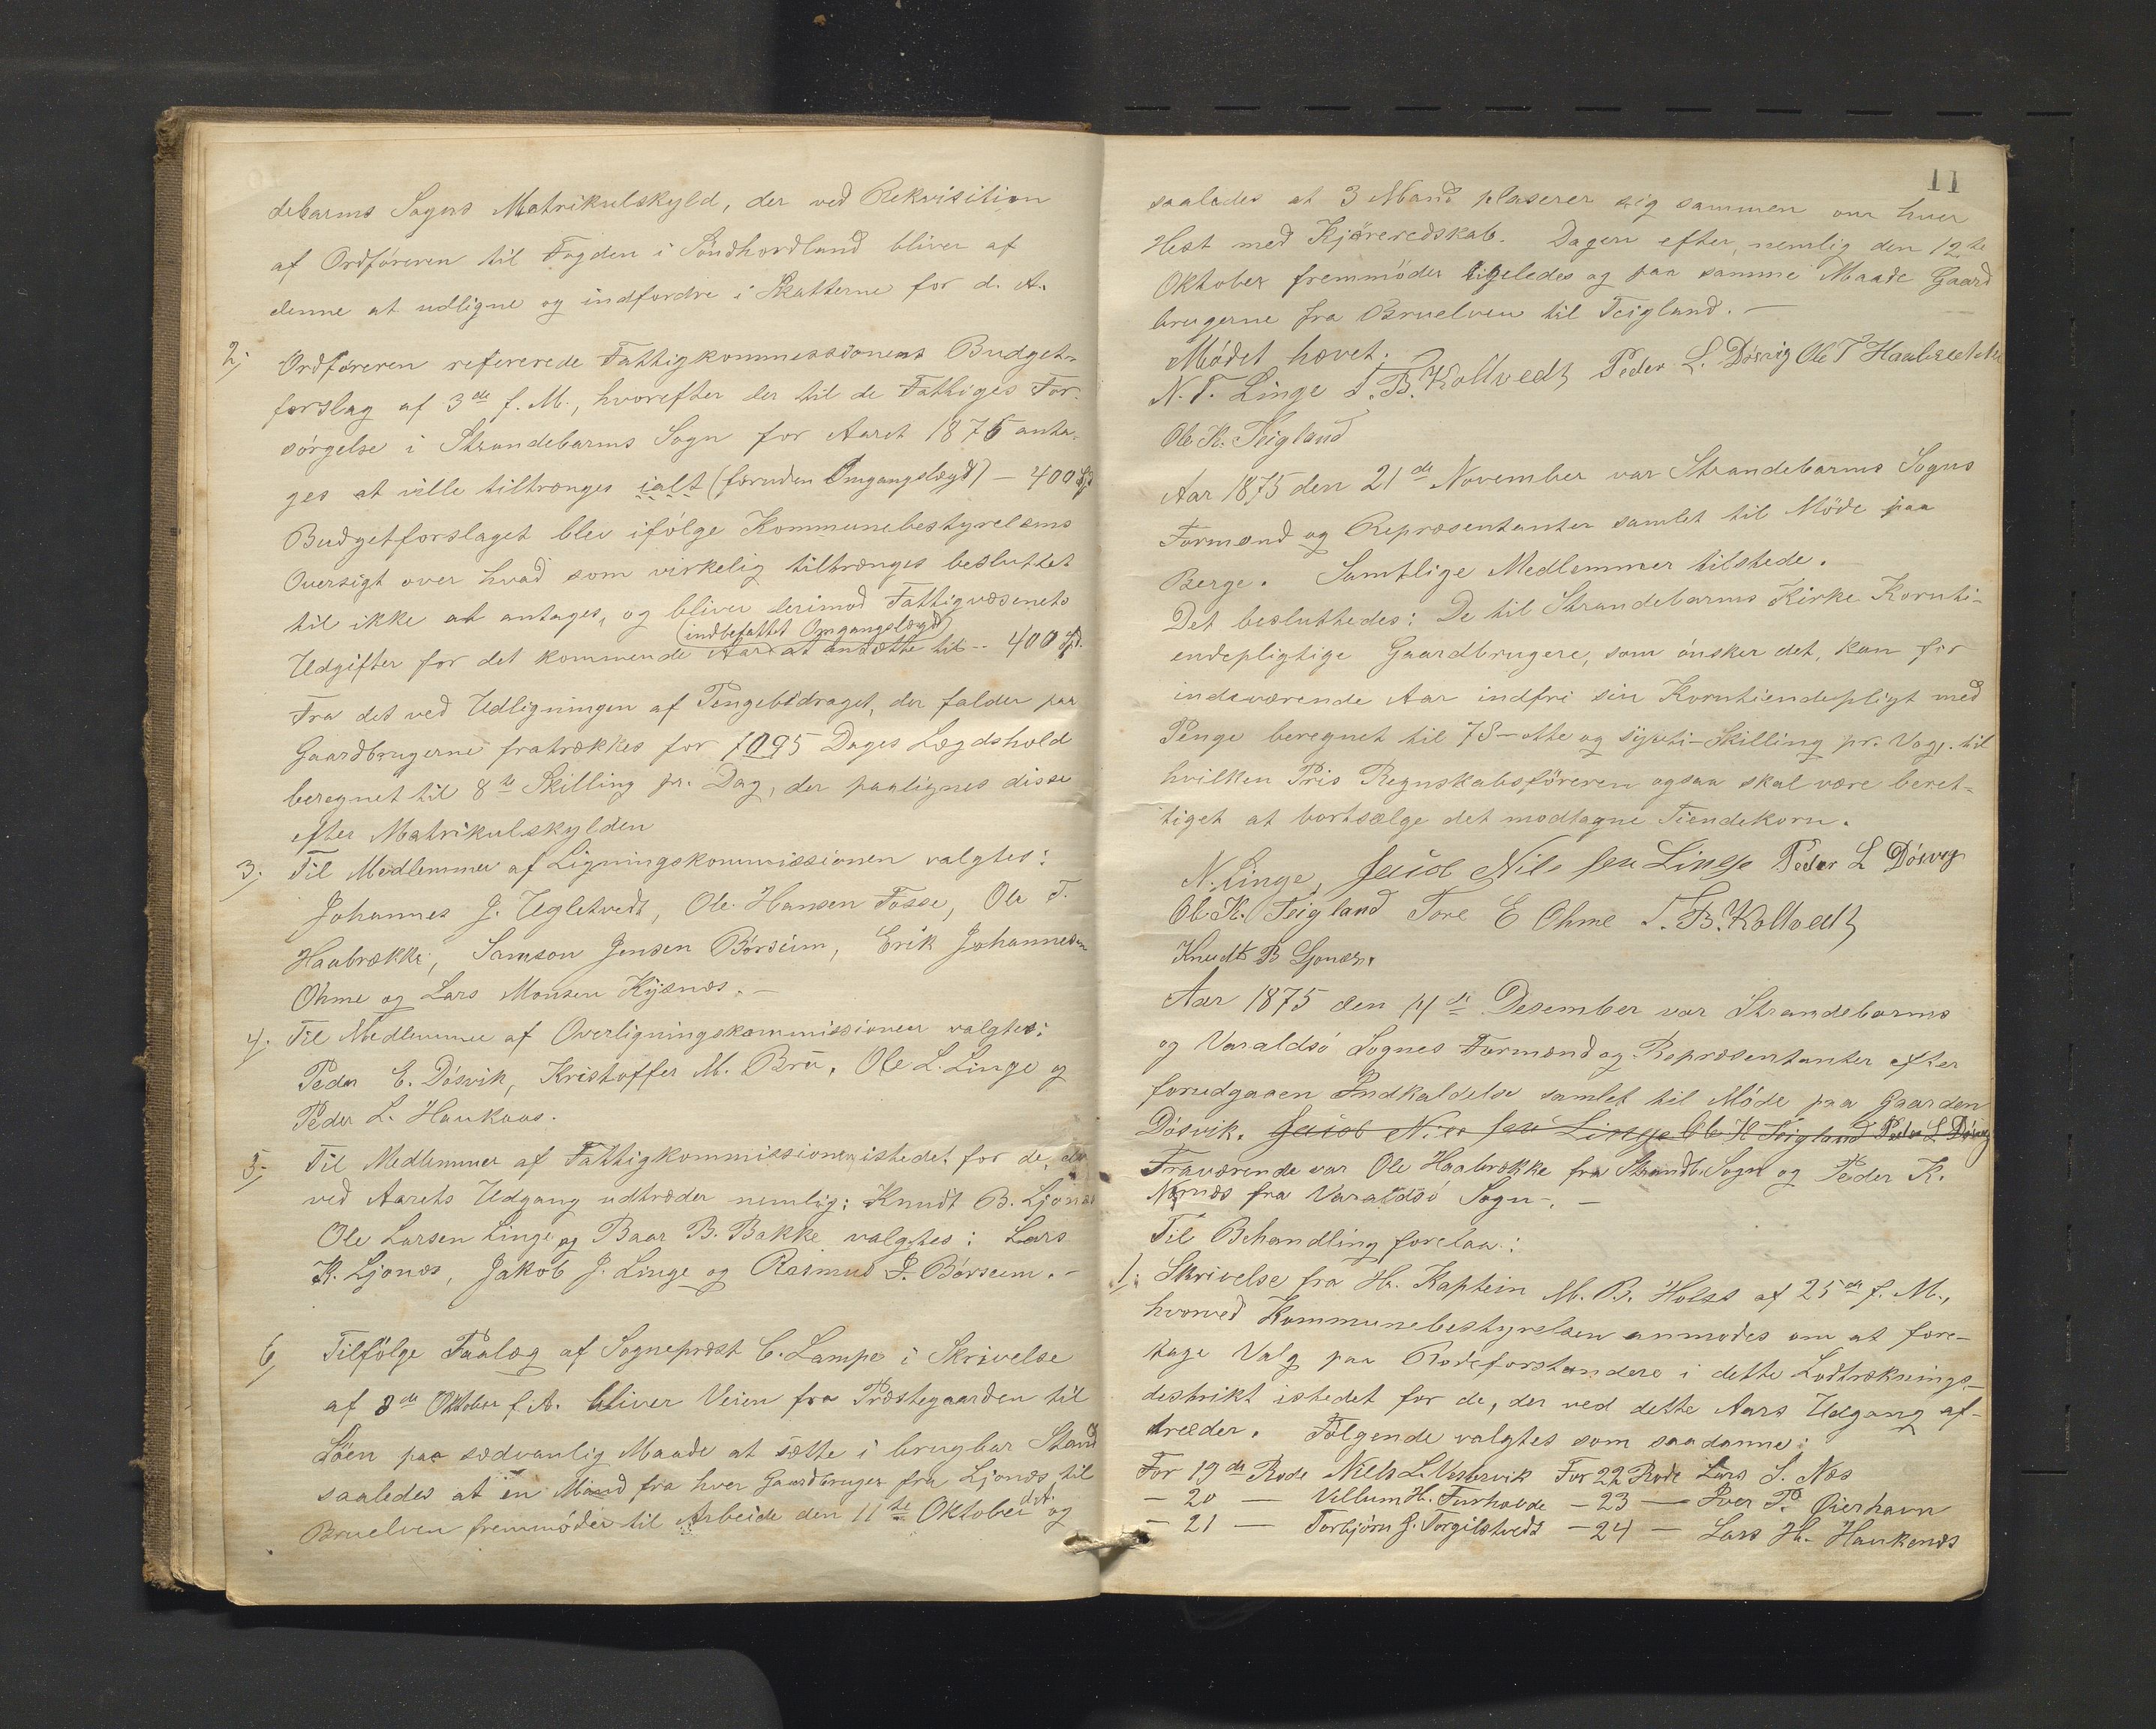 debarms Sogns Matrikulskyld, der ved Rekvisition
af Ordföreren til Fogden i Söndhordland bliver af
denne at udligne og indfordre i Skatterne for d. A.
2; Ordföreren refererede Fattigkommissionens Budget-
forslag af 3de f. M., hvorefter der til de Fattiges For-
sörgelse i Strandebarms Sogn for Aaret 1876 anta-
ges at ville tiltrænges ialt (foruden Omgangslægd) - 400 Spd
Budgetforslaget blev ifölge Kommunebestyrelsens
Oversigt over hvad som virkelig tiltrænges besluttet
til ikke at antages, og bliver derimod Fattigvæsenets
(indbefattet Omgangslægd)
Udgifter for det kommende Aar at ansætte til -- 400 Spd.
Fra det ved Udligningen af Pengebidraget, der falder paa
Gaardbrugerne fratrækkes for 1095 Dages Lægdshold
beregnet til 8te Skilling pr. Dag, der paalignes disse
efter Matrikulskylden
3; Til Medlemmer af Ligningskommissionen valgtes:
Johannes J. Ugletvedt, Ole Hansen Fosse, Ole T.
Haabrække, Samson Jensen Börsum, Erik Johannesen
Ohme og Lars Monsen Kysnæs. -
4; Til Medlemmer af Overligningskommissionen valgtes:
Peder E. Dösvik, Kristoffer M. Bru, Ole L. Linge og
Peder L. Haukaas.
5; Til Medlemmer af Fattigkommissionen istedet for de, der
ved Aarets Udgang udtræder nemlig: Knudt B. Ljonæs
Ole Larsen Linge og Baar B. Bakke valgtes: Lars
K. Ljonæs, Jakob J. Linge og Rasmus J. Börsum. -
6, Tilfölge Paalæg af Sogneprest C. Lampe i Skrivelse
af 8de Oktober f. A. bliver Veien fra Præstegaarden til
Söen paa sædvanlig Maade at sætte i brugbar Stand
saaledes at en Mand fra hver Gaardbruger fra Ljonæs til
Bruelven fremmöder til Arbeide den 11te Oktober d.A. og
11
saaledes at 3 Mand plaserer sig sammen om hver
Hest med Kjöreredskab. Dagen efter, nemlig den 12te
Oktober fremmöder ligeledes og paa samme Maade Gaard
brugerne fra Bruelven til Teigland. -
Mödet hævet.
N. T. Linge T. B. Kollvedt Peder L. Dösvig Ole T Haabrekke
Ole K. Teigland
Aar 1875 den 21de November var Strandebarms Sogns
Formænd og Repræsentanter samlet til Möde paa
Berge. Samtlige Medlemmer tilstede.
Det besluttedes: De til Strandebarms Kirke Kornti-
endepligtige Gaardbrugere, som önsker det, kan for
indeværende Aar indfri sin Korntiendepligt med
Penge beregnet til 78 - otte og sytti - Skilling pr. Vog, til
hvilken Pris Regnskabsföreren ogsaa skal være beret-
tiget at bortsælge det modtagne Tiendekorn.
N. Linge, Jacob Nilssen Linge Peder L Dösvig
Ole K. Teigland Tore E Ohme T. B. Kollvedt
Knudt B Ljonæs.
Aar 1875 den 14de Desember var Strandebarms
og Varaldsö Sognes Formænd og Repræsentanter efter
forudgaaen Indkaldelse samlet til Möde paa Gaarden
Dösvik. Jacob Nilssen Linge Ole K Teigland Peder L Dösvig
Fraværende var Ole Haabrække fra Strandb. Sogn og Peder K.
Nernæs fra Varaldsö Sogn. -
Til Behandling forelaa:
1; Skrivelse fra Hr. Kaptein M. B. Holst af 25de f. M.,
hvorved Kommunebestyrelsen anmodes om at fore-
tage Valg paa Rodeforstandere i dette Lodtræknings-
destrikt istedet for de, der ved dette Aars Udgang af-
træder. Fölgende valgtes som saadanne:
For 19de Rode Niels L. Vestervik For 22 Rode Lars S. Næs
- 20 - Villum H. Furhovde - 23 - Iver P. Øierhavn
- 21 - Torbjörn J. Torgilstvedt - 24 - Lars H. Haukenæs